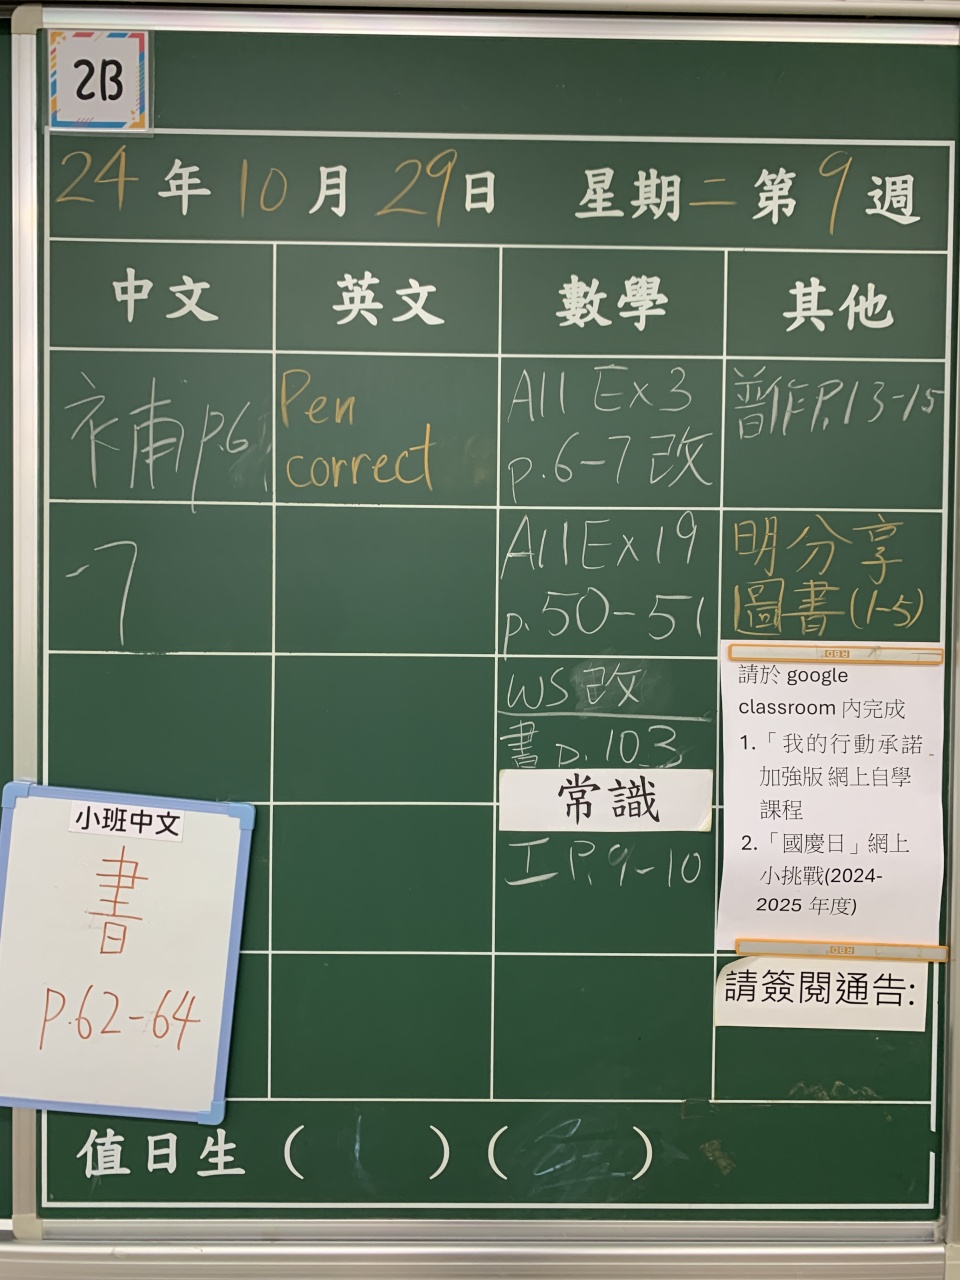 2B
24 年 10 月 29 日 星期二 第 9 週
中文 英文 數學 其他
補 p.6
-7
Pen
correct
All Ex 3
p.6-7 改
All Ex 19
p.50-51
WS 改
書 p.103
常識
工 P.9-10
普作P.13-15
明分享
圖書(1-5)
請於 google
classroom 內完成
1.「我的行動承諾
加強版 網上自學
課程
2.「國慶日」網上
小挑戰(2024-
2025 年度)
請簽閱通告:
小班中文
書
p.62-64
值日生 ( ) ( )